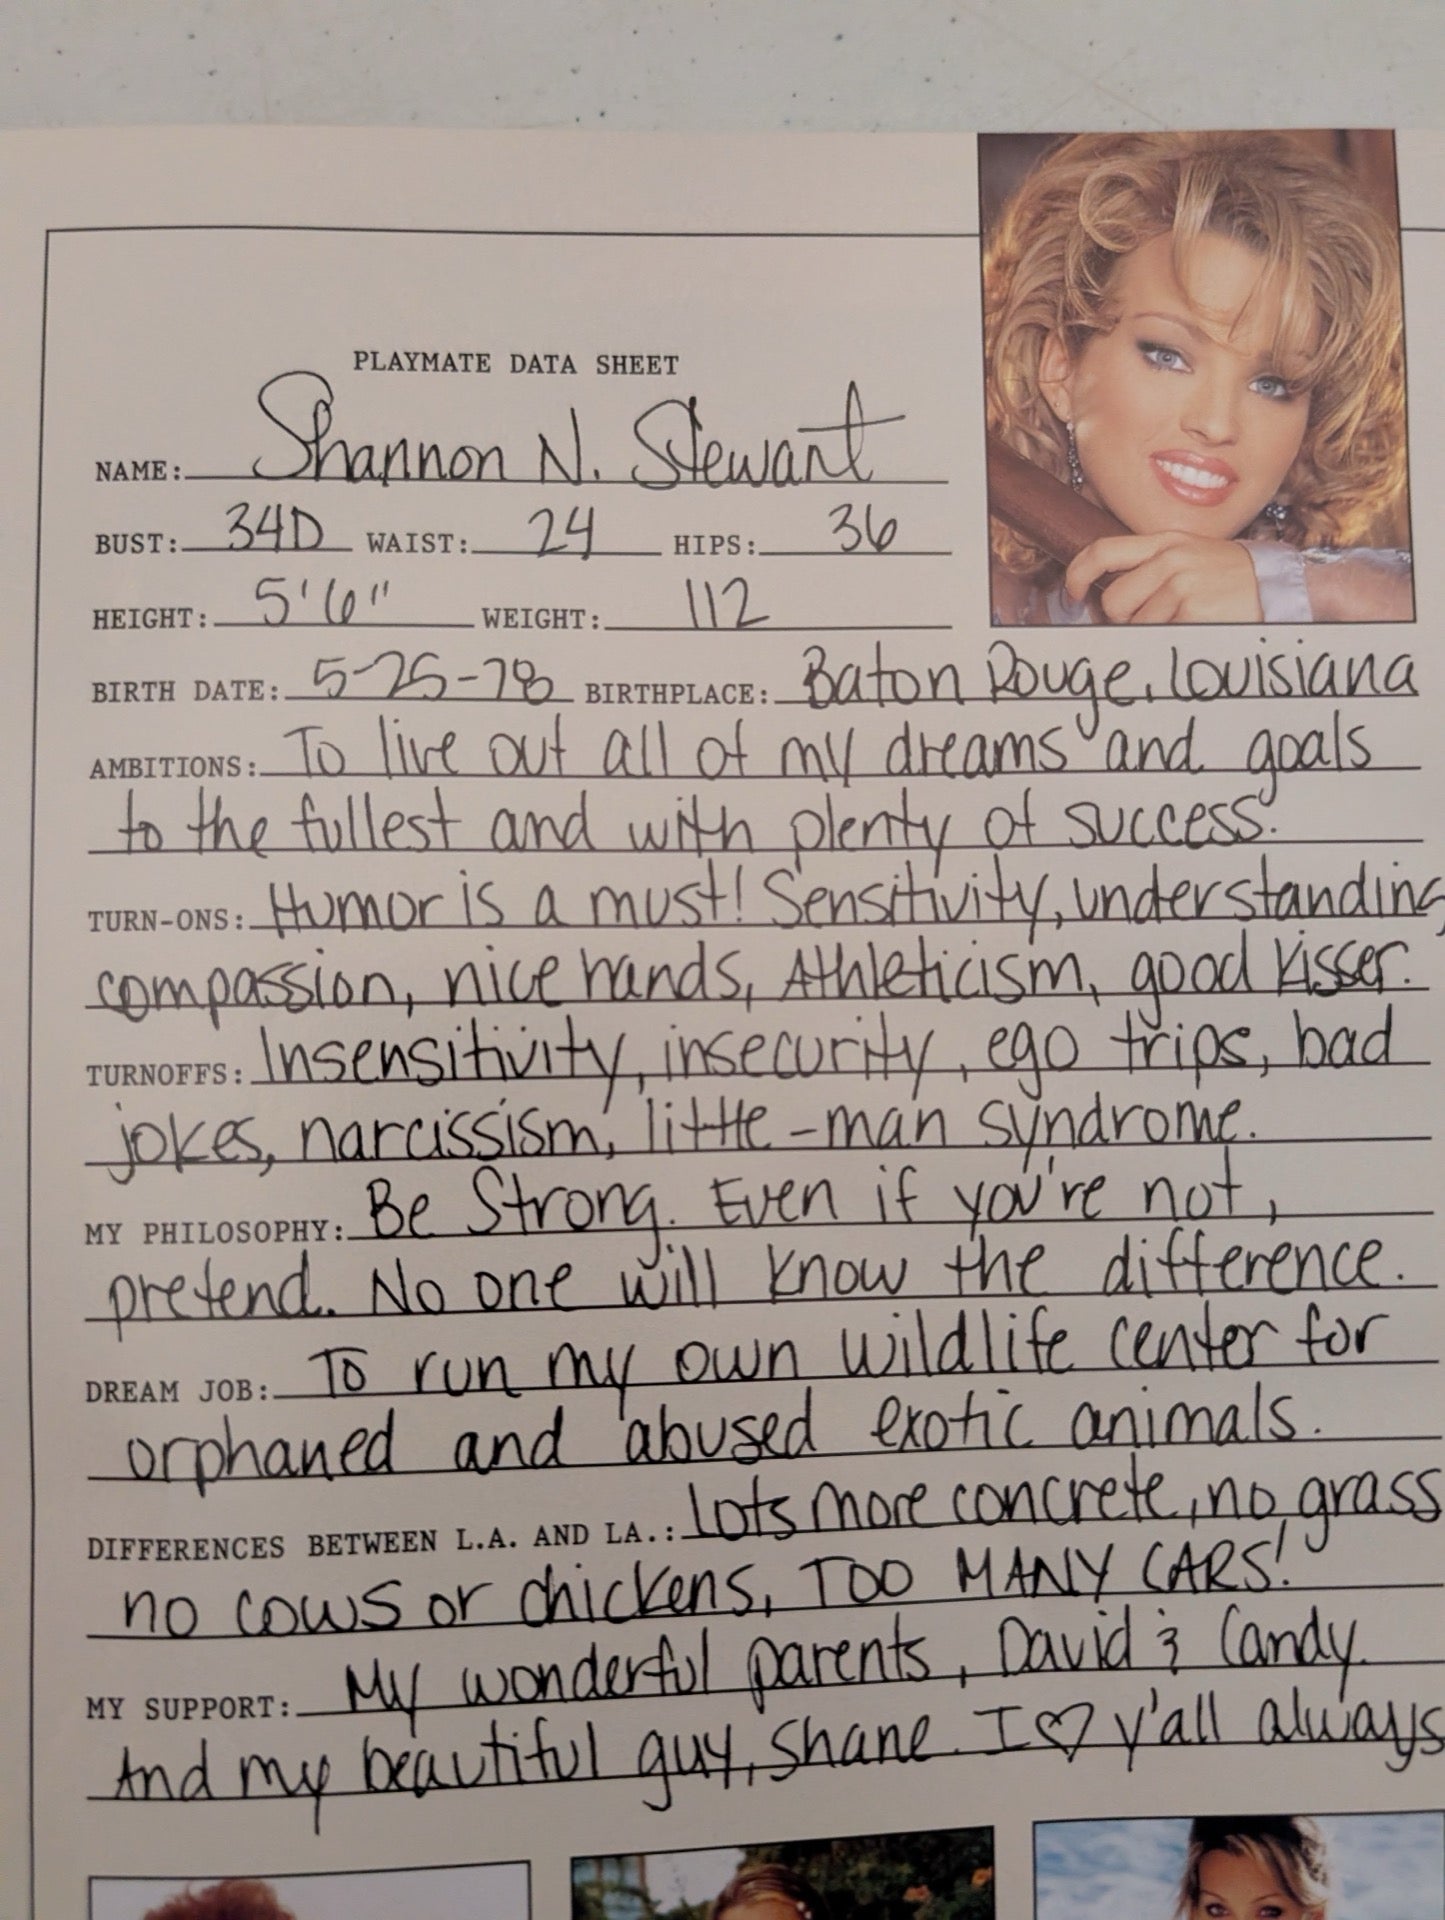 PLAYMATE DATA SHEET
NAME: Shannon N. Stewart
BUST: 34D WAIST: 24 HIPS: 36
HEIGHT: 5'6" WEIGHT: 112
BIRTH DATE: 5-25-78 BIRTHPLACE: Baton Rouge, Louisiana
AMBITIONS: To live out all of my dreams and goals
to the fullest and with plenty of success.
TURN-ONS: Humor is a must! Sensitivity, understanding
compassion, nice hands, Athleticism, good kisser.
TURNOFFS: Insensitivity, insecurity, ego trips, bad
jokes, narcissism, little-man syndrome.
MY PHILOSOPHY: Be Strong. Even if you're not,
pretend. No one will know the difference.
DREAM JOB: To run my own wildlife center for
orphaned and abused exotic animals.
DIFFERENCES BETWEEN L.A. AND LA.: Lots more concrete, no grass
no cows or chickens, TOO MANY CARS!
MY SUPPORT: My wonderful parents, David & Candy.
And my beautiful guy, Shane. I ♡ y'all always